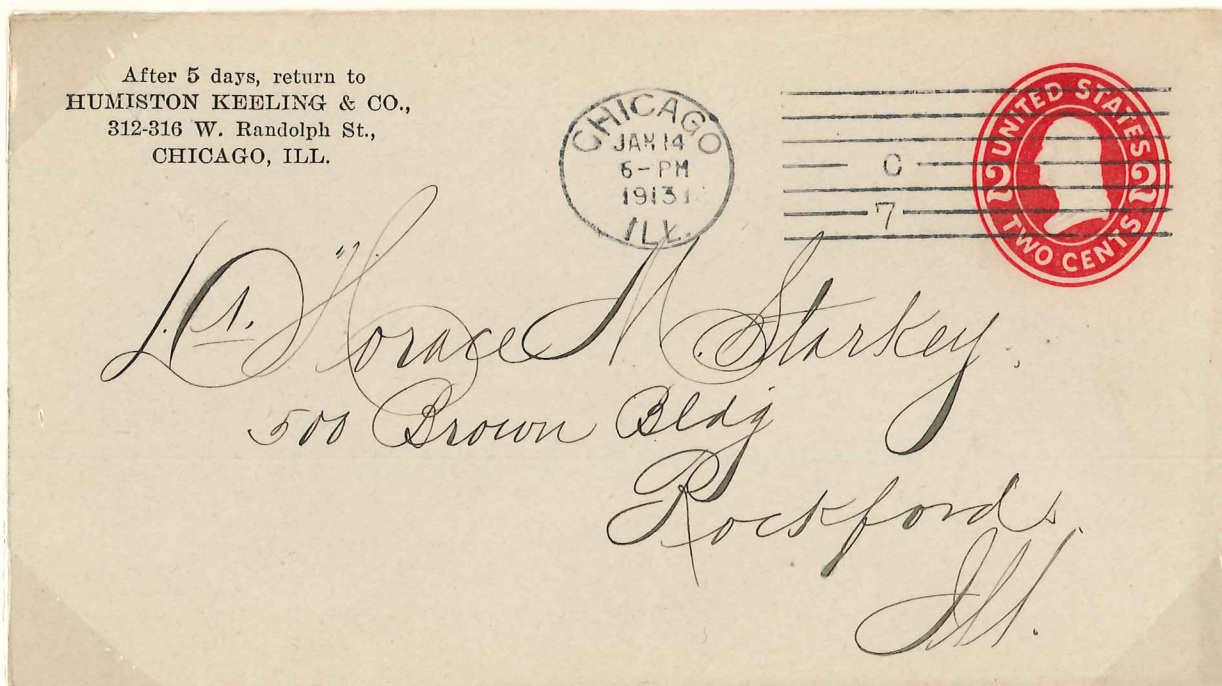 After 5 days, return to
HUMISTON KEELING & CO.,
312-316 W. Randolph St.,
CHICAGO, ILL.
CHICAGO
JAN 14
6-PM
1913
ILL.
C
7
UNITED STATES
2 2
TWO CENTS
Horace M. Starkey.
500 Brown Bldg
Rockford.
Ill.